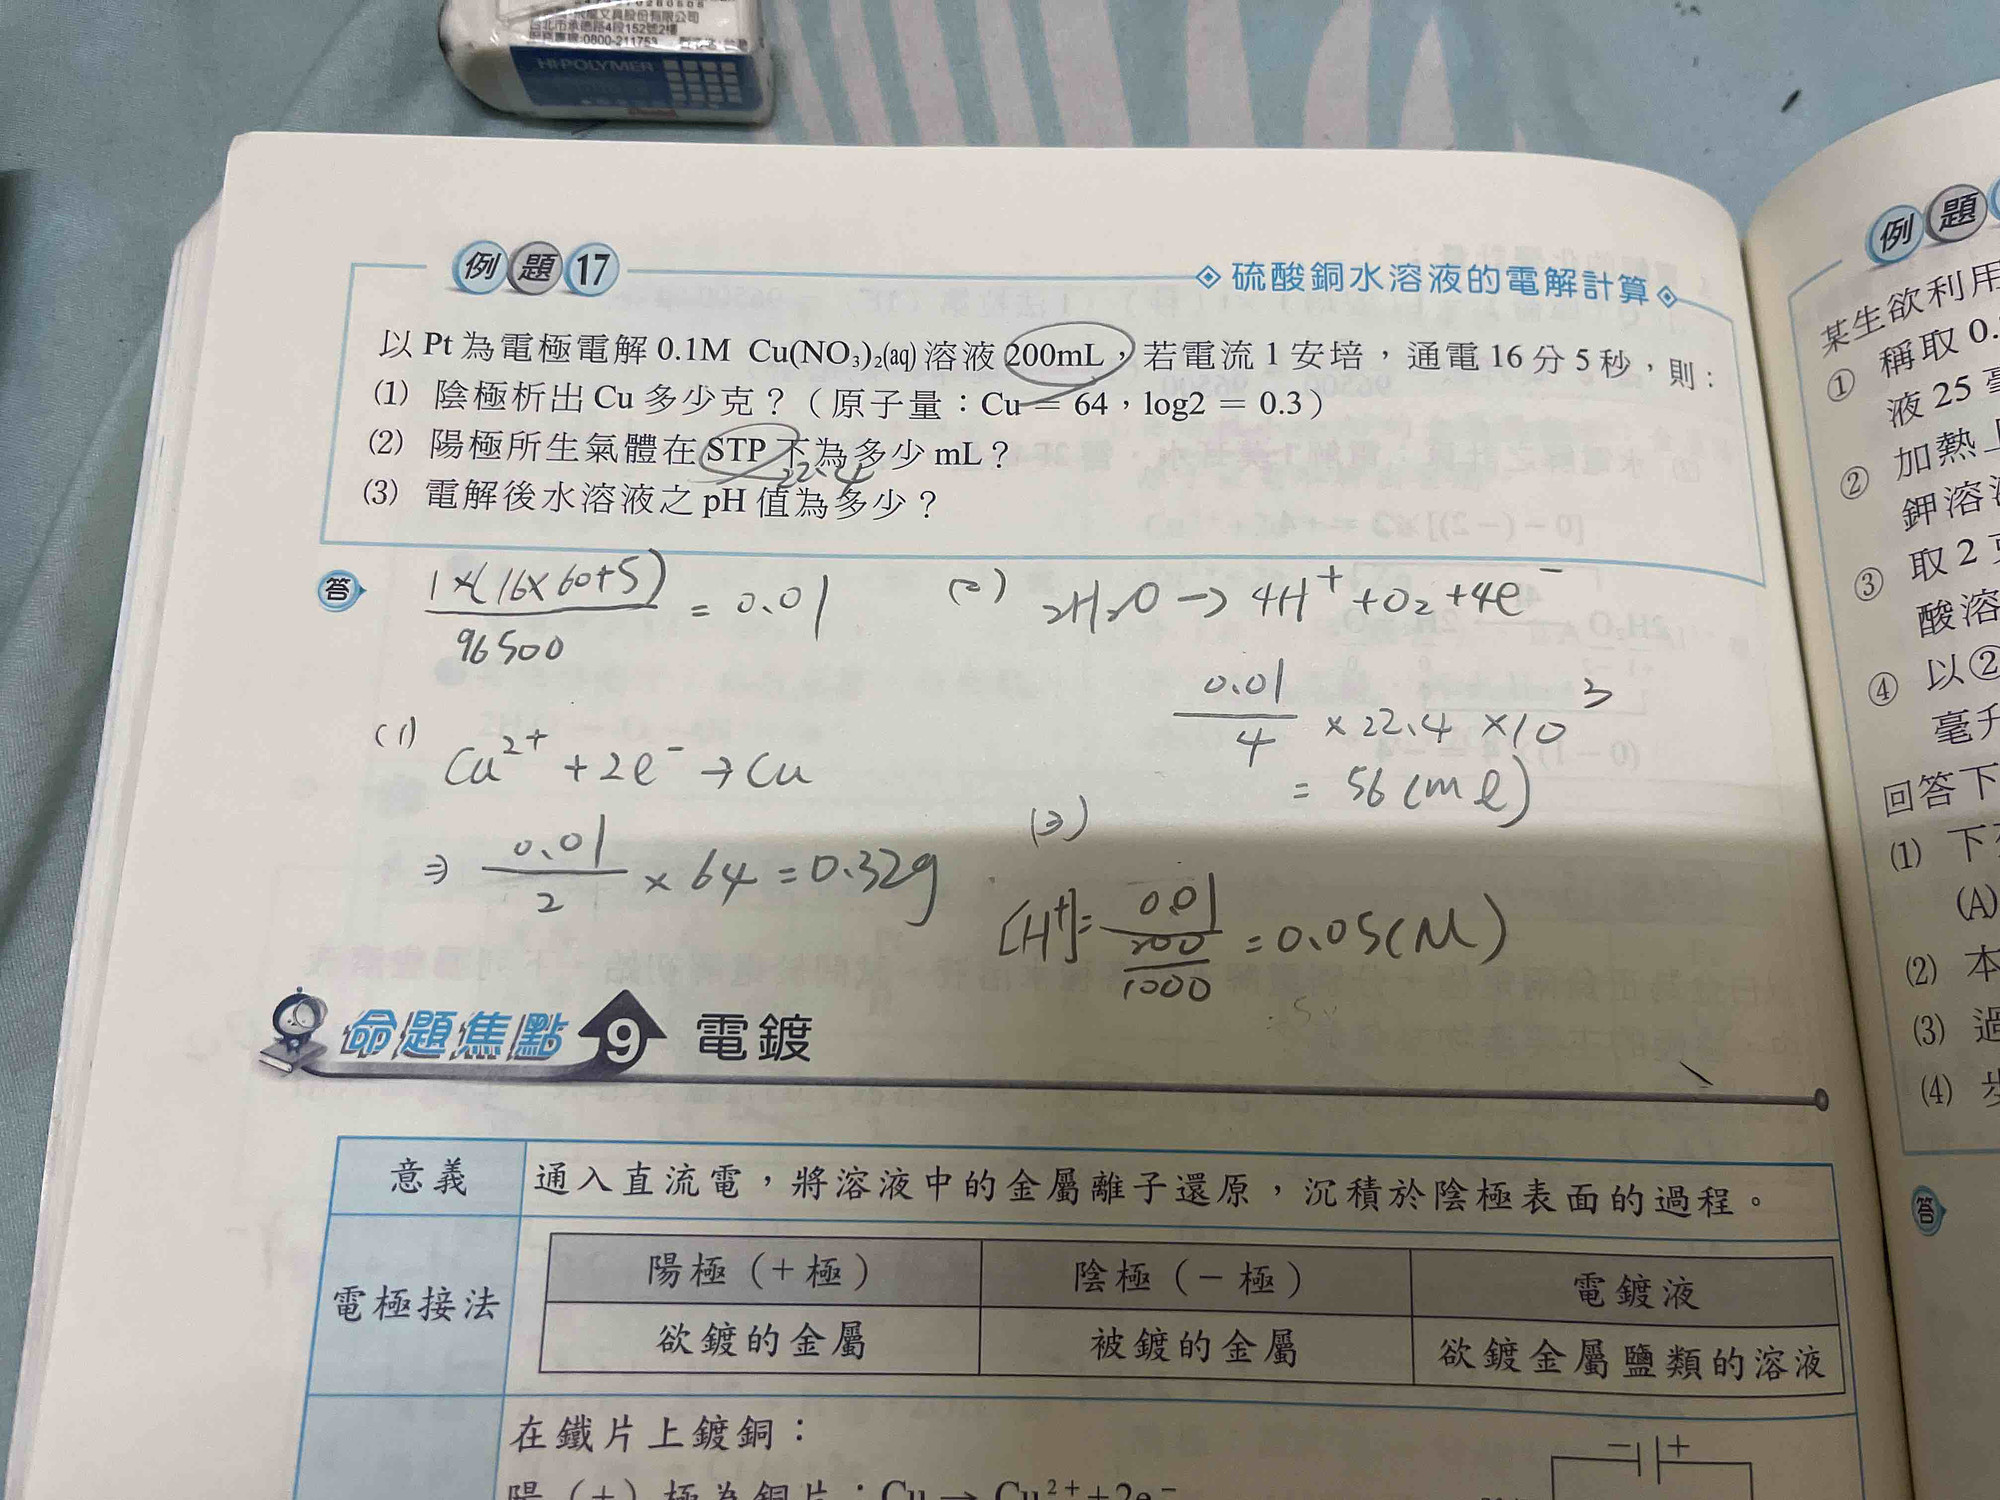 文具股份有限公司
台北市承德路4段152號2樓
0800-211753
HI-POLYMER
例題17
硫酸銅水溶液的電解計算
以 Pt 為電極電解 0.1M Cu(NO₃)₂(aq) 溶液 200mL，若電流 1 安培，通電 16 分 5 秒，則：
(1) 陰極析出 Cu 多少克？（原子量：Cu = 64，log2 = 0.3）
(2) 陽極所生氣體在 STP 下為多少 mL？
22.4
(3) 電解後水溶液之 pH 值為多少？
答
1×(16×60+5) / 96500 = 0.01
(1)
Cu²⁺ + 2e⁻ → Cu
⇒ 0.01 / 2 × 64 = 0.32g
(2) 2H₂O → 4H⁺ + O₂ + 4e⁻
0.01 / 4 × 22.4 × 10³
= 56 (ml)
(3)
[H⁺] = 0.01 / (200 / 1000) = 0.05 (M)
命題焦點 9 電鍍
意義 通入直流電，將溶液中的金屬離子還原，沉積於陰極表面的過程。
電極接法
陽極（＋極） 陰極（－極） 電鍍液
欲鍍的金屬 被鍍的金屬 欲鍍金屬鹽類的溶液
在鐵片上鍍銅：
陽（＋）極為銅片：Cu → Cu²⁺ + 2e⁻
－ ＋
例題
某生欲利用
① 稱取 0.
液 25 毫
② 加熱
鉀溶
③ 取 2
酸溶
④ 以②
毫升
回答下
(1) 下
(A)
(2) 本
(3) 過
(4)
答